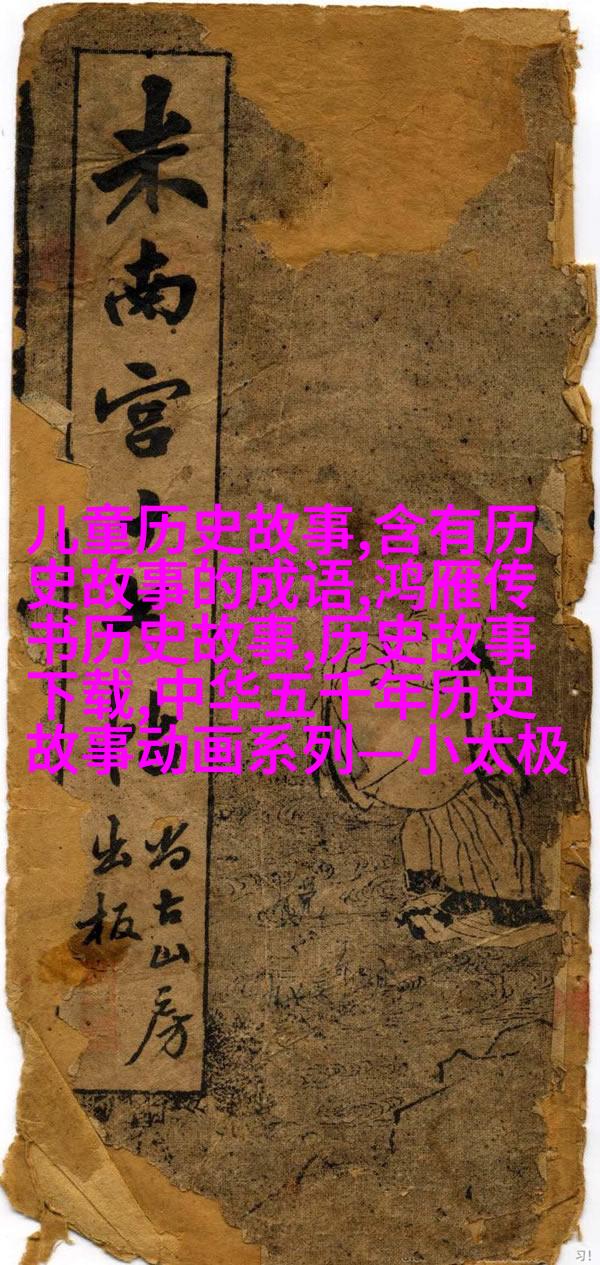 米南宫
尚古山房
出板
儿童历史故事,含有历
史故事的成语,鸿雁传
书历史故事,历史故事
下载,中华五千年历史
故事动画系列—小太极
习!